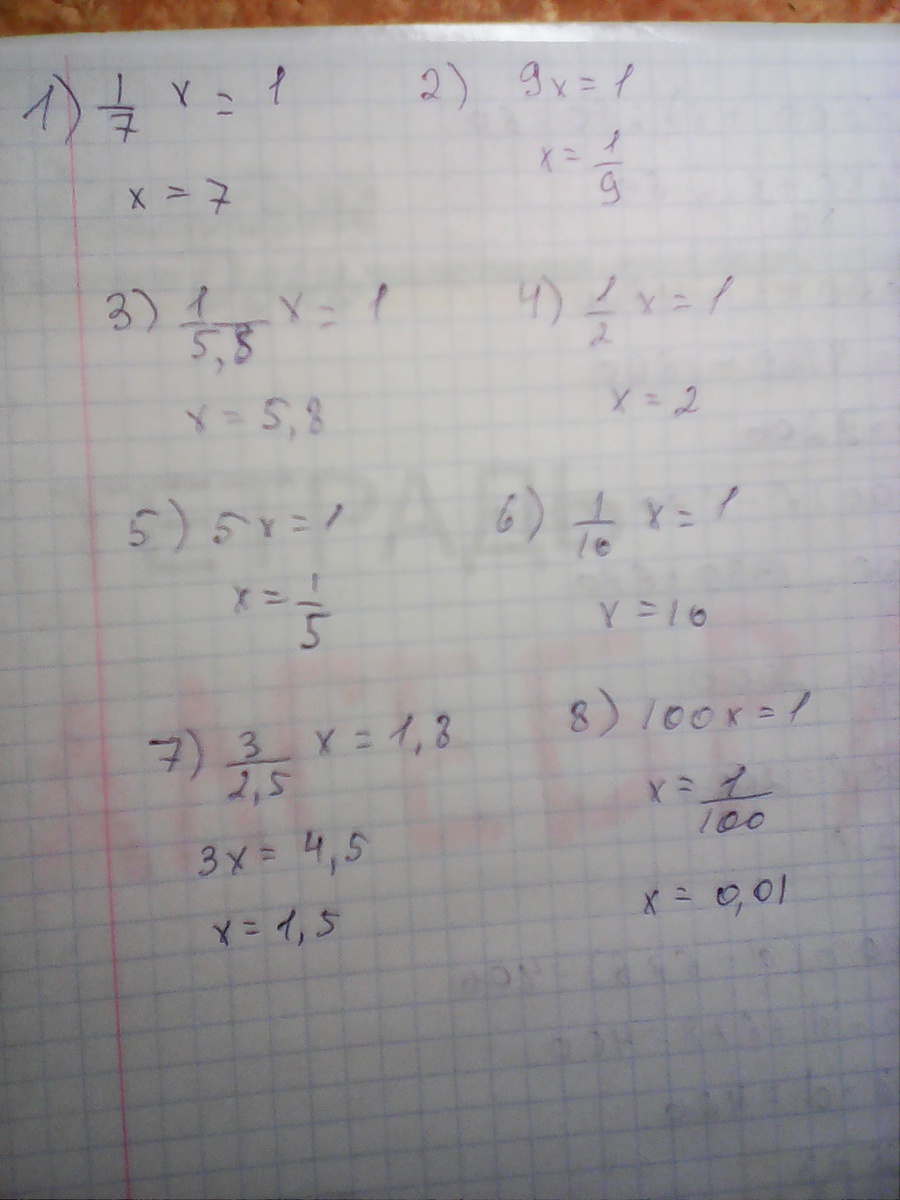 1) 1/7 x = 1
x = 7
2) 9x = 1
x = 1/9
3) 1/5,8 x = 1
x = 5,8
4) 1/2 x = 1
x = 2
5) 5x = 1
x = 1/5
6) 1/10 x = 1
x = 10
7) 3/2,5 x = 1,8
3x = 4,5
x = 1,5
8) 100x = 1
x = 1/100
x = 0,01